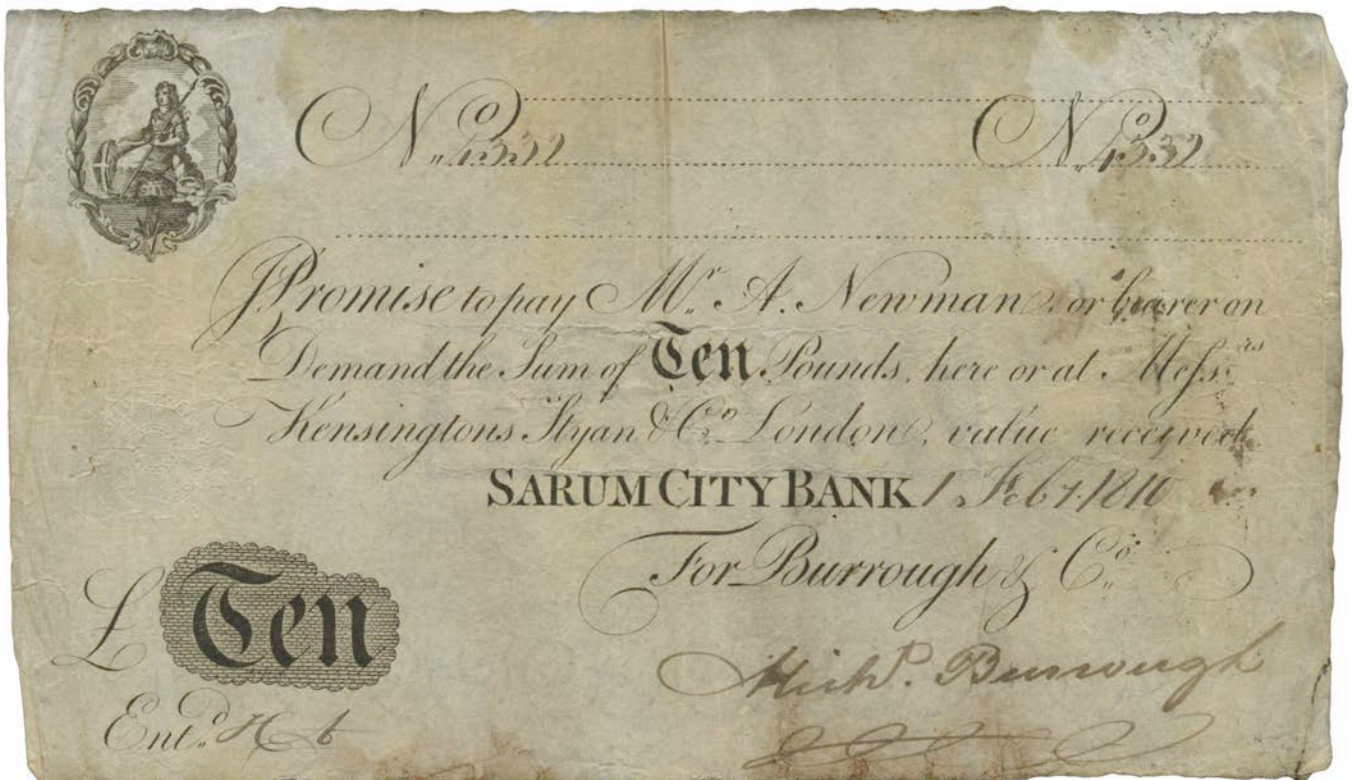 No 4332 No 4332
I Promise to pay Mr. A. Newman, or bearer on
Demand the Sum of Ten Pounds, here or at Messrs
Kensingtons Styan & Co. London, value received
SARUM CITY BANK 1 Feby. 1810
For Burrough & Co.
£ Ten
Michl. Burrough
Entd.